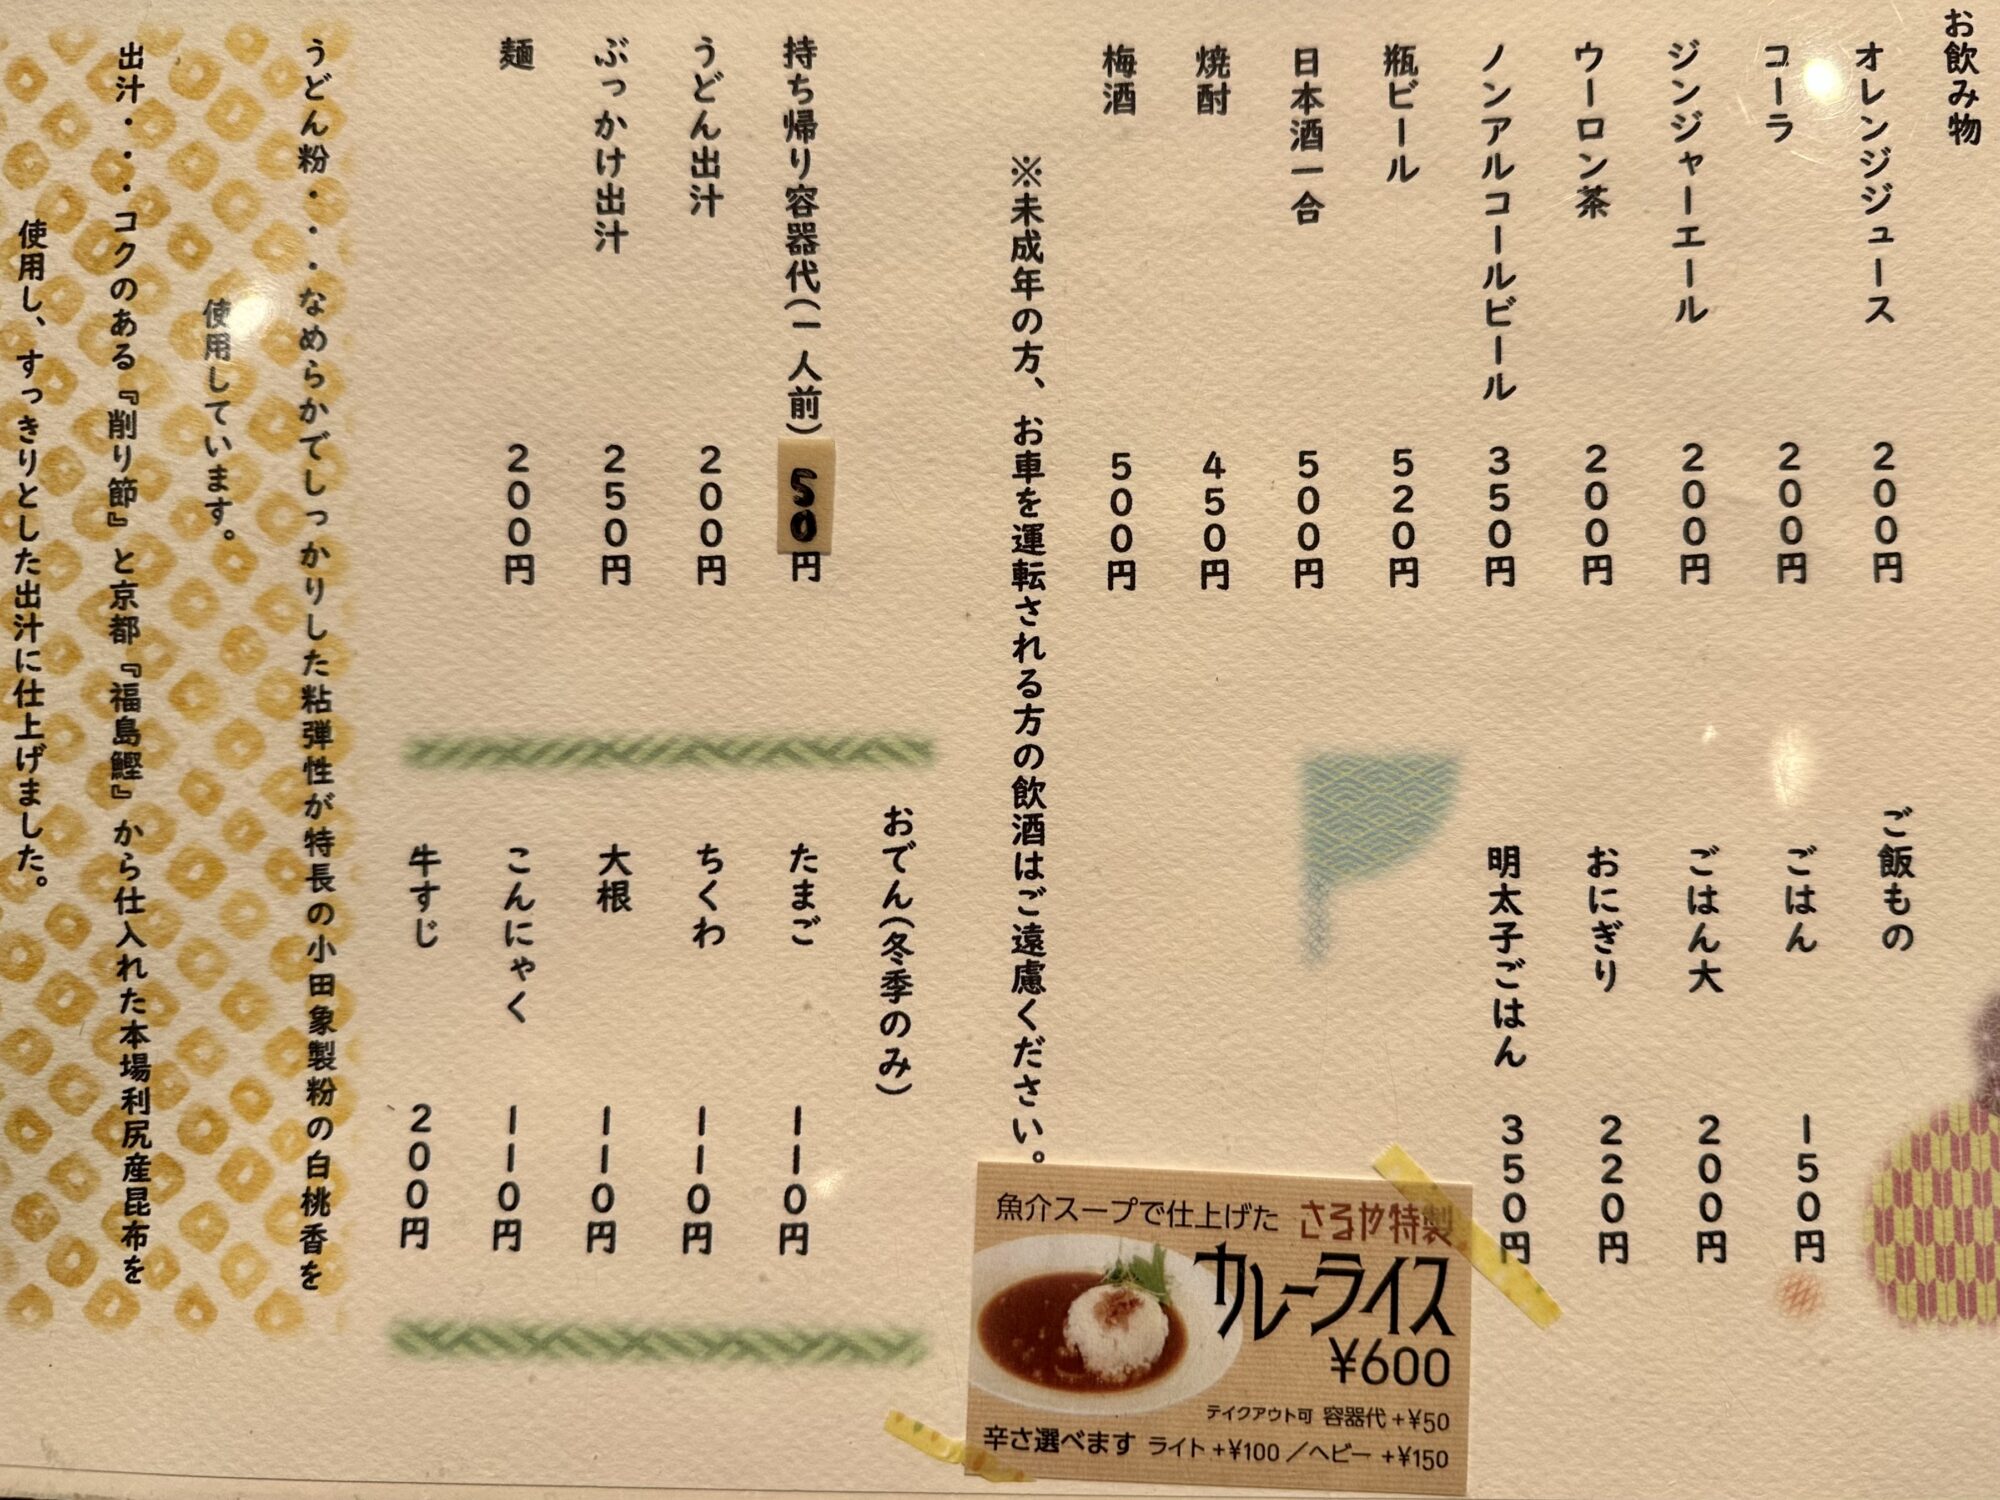 お飲み物
オレンジジュース 200円
コーラ 200円
ジンジャーエール 200円
ウーロン茶 200円
ノンアルコールビール 350円
瓶ビール 520円
日本酒一合 500円
焼酎 450円
梅酒 500円
※未成年の方、お車を運転される方の飲酒はご遠慮ください。
ご飯もの
ごはん 150円
ごはん大 200円
おにぎり 220円
明太子ごはん 350円
持ち帰り容器代(一人前) 50円
うどん出汁 200円
ぶっかけ出汁 250円
麺 200円
おでん(冬季のみ)
たまご 110円
ちくわ 110円
大根 110円
こんにゃく 110円
牛すじ 200円
うどん粉・・・なめらかでしっかりした粘弾性が特長の小田象製粉の白桃香を
使用しています。
出汁・・・コクのある『削り節』と京都『福島鰹』から仕入れた本場利尻産昆布を
使用し、すっきりとした出汁に仕上げました。
魚介スープで仕上げた さるや特製
カレーライス
¥600
テイクアウト可 容器代+¥50
辛さ選べます ライト+¥100/ヘビー+¥150